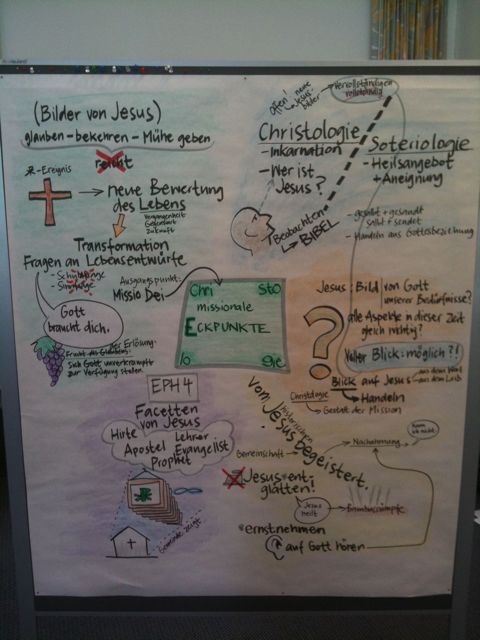 (Bilder von Jesus)
glauben-bekehren-Mühe geben
reicht
-Ereignis
neue Bewertung
des Lebens
Vergangenheit
Gegenwart
Zukunft
Transformation
Fragen an Lebensentwürfe
Ausgangspunkt:
Missio Dei
Gott
braucht dich.
der Erlösung.
Frucht des Glaubens:
Sich Gott unverkrampft
zur Verfügung stellen.
Chri sto
missionale
ECKPUNKTE
lo gie
EPH 4
Facetten
von Jesus
Hirte
Lehrer
Apostel
Evangelist
Prophet
Gemeinde zeigt
offen!
neue
Jesus-
bilder
vervollständigen
Christologie
-Inkarnation
-Wer ist
Jesus?
Beobachten
BIBEL
Soteriologie
-Heilsangebot
+Aneignung
- gesalbt + gesandt
salbt + sendet
- Handeln aus Gottesbeziehung
Jesus: Bild von Gott
unserer Bedürfnisse?
alle Aspekte in dieser Zeit
gleich wichtig?
Voller Blick: möglich?!
Blick auf Jesus
aus dem Wort
aus dem Leib
Handeln
Christologie
Gestalt der Mission
Vom historischen
Jesus begeistert.
Gemeinschaft
Nachahmung
kann
ich nicht
Jesus ent-
glätten!
Jesus
heilt
*ernstnehmen
auf Gott hören